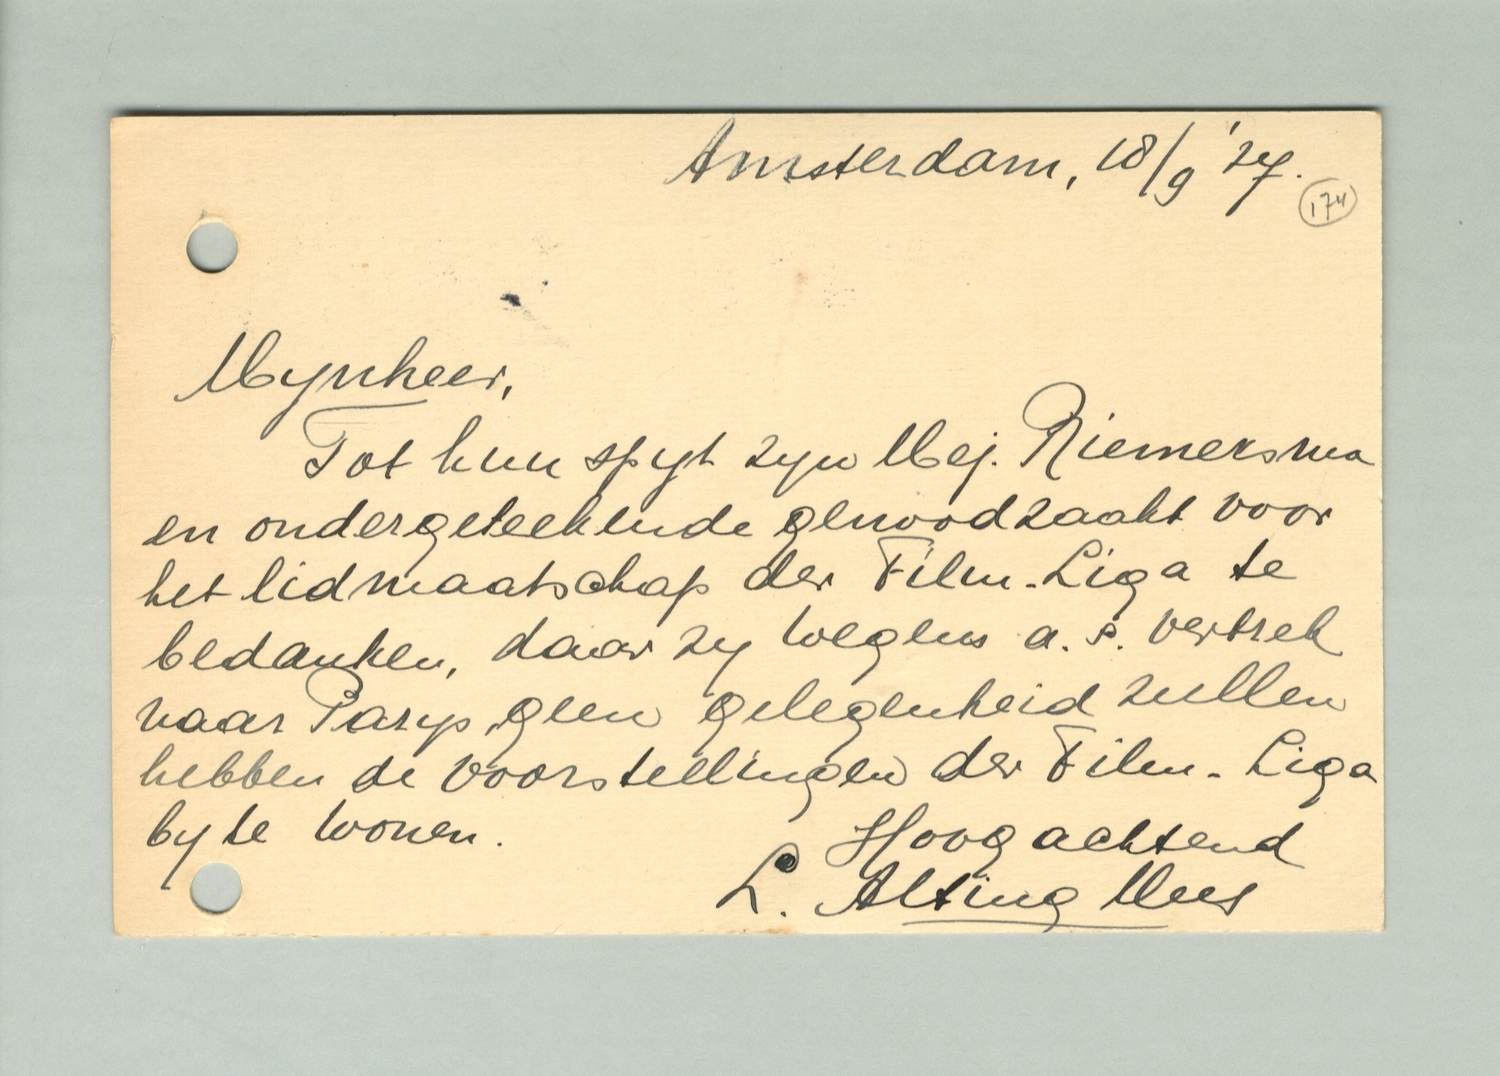 Amsterdam, 18/9 '27.
174
Mynheer,
Tot hun spyt zyn Mej. Riemersma
en ondergeteekende genoodzaakt voor
het lidmaatschap der Film-Liga te
bedanken, daar zy wegens a.s. vertrek
naar Parys, geen gelegenheid zullen
hebben de voorstellingen der Film-Liga
by te wonen.
Hoogachtend
L. Alting Mees